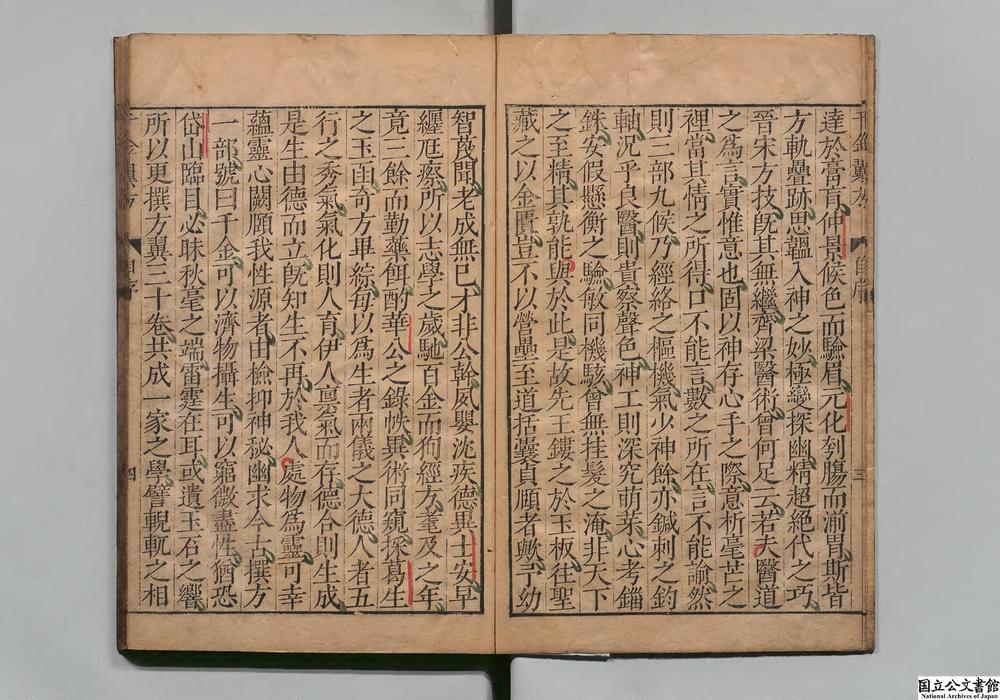 達於膏肓仲景候色而驗眉元化刳腸而湔胃斯皆
方軌疊跡思韞入神之妙極變探幽精超絕代之巧
晉宋方技旣其無繼齊梁醫術曾何足云若夫醫道
之爲言實惟意也固以神存心手之際意析毫芒之
裡當其情之所得口不能言數之所在言不能諭然
則三部九候乃經絡之樞機氣少神餘亦鍼刺之鈞
軸況乎良醫則貴察聲色神工則深究萌芽心考錙
銖安假懸衡之驗敏同機駭曾無挂髮之淹非天下
之至精其孰能與於此是故先王鏤之於玉板往聖
藏之以金匱豈不以營壘至道括囊貞頤者歟予幼
自序
三
智蔑聞老成無已才非公幹夙嬰沈疾德異士安早
纏尫瘵所以志學之歲馳百金而狥經方耄及之年
竟三餘而勤藥餌酌華公之錄帙異術同窺採葛生
之玉函奇方畢綜每以爲生者兩儀之大德人者五
行之秀氣氣化則人育伊人稟氣而存德合則生成
是生由德而立旣知生不再於我人處物爲靈可幸
蘊靈心闕頤我性源者由檢抑神秘幽求今古撰方
一部號曰千金可以濟物攝生可以窮微盡性猶恐
岱山臨目必昧秋毫之端雷霆在耳或遺玉石之響
所以更撰方翼三十卷共成一家之學譬輗軏之相
自序
四
国立公文書館
National Archives of Japan